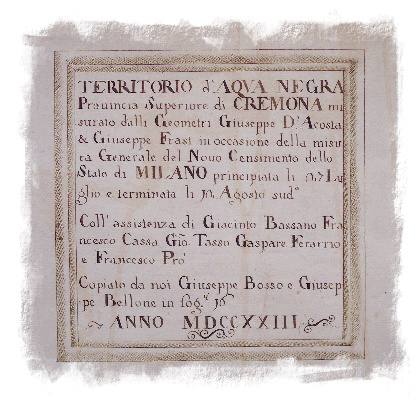 TERRITORIO d'AQVA NEGRA
Prouincia Superiore di CREMONA mi
surato dalli Geometri Giuseppe D'Acosta
& Giuseppe Frasi in occasione della misu
ra Generale del Nouo Censimento dello
Stato di MILANO principiata li Lu
glio e terminata li Agosto sud.º
Coll' assistenza di Giacinto Bassano Fra
ncesco Cassa Gio Tasso Gaspare Ferarrio
e Francesco Prò
Copiato da noi Giuseppe Bosso e Giusep
pe Bellone in fog.
ANNO MDCCXXIII